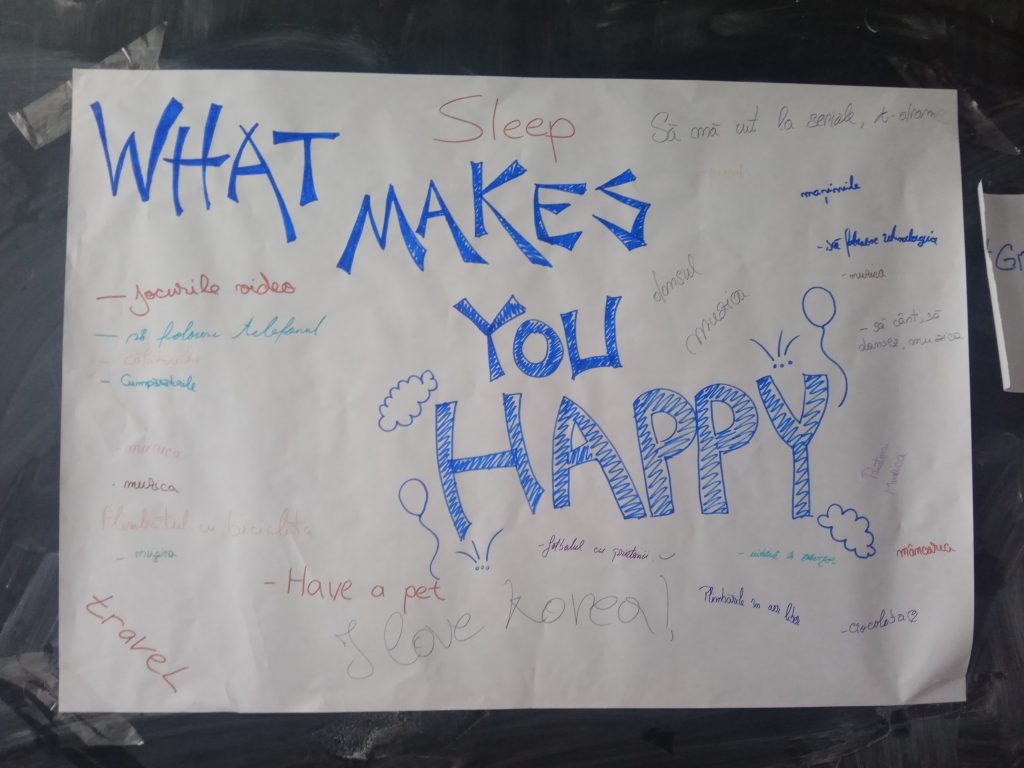 WHAT
MAKES
YOU
HAPPY
Sleep
Să mă uit la seriale,
mașinile
- să folosesc tehnologia
- muzica
dansul
muzica
- să cânt, să
dansez, muzica
— Jocurile video
- să folosesc telefonul
- Cumpărăturile
- muzica
• muzica
Plimbatul cu bicicleta
- muzica
travel
- Have a pet
I love Korea!
- fotbalul cu prietenii
Muzica
mâncarea
Plimbările în aer liber
- ciocolata
Gr